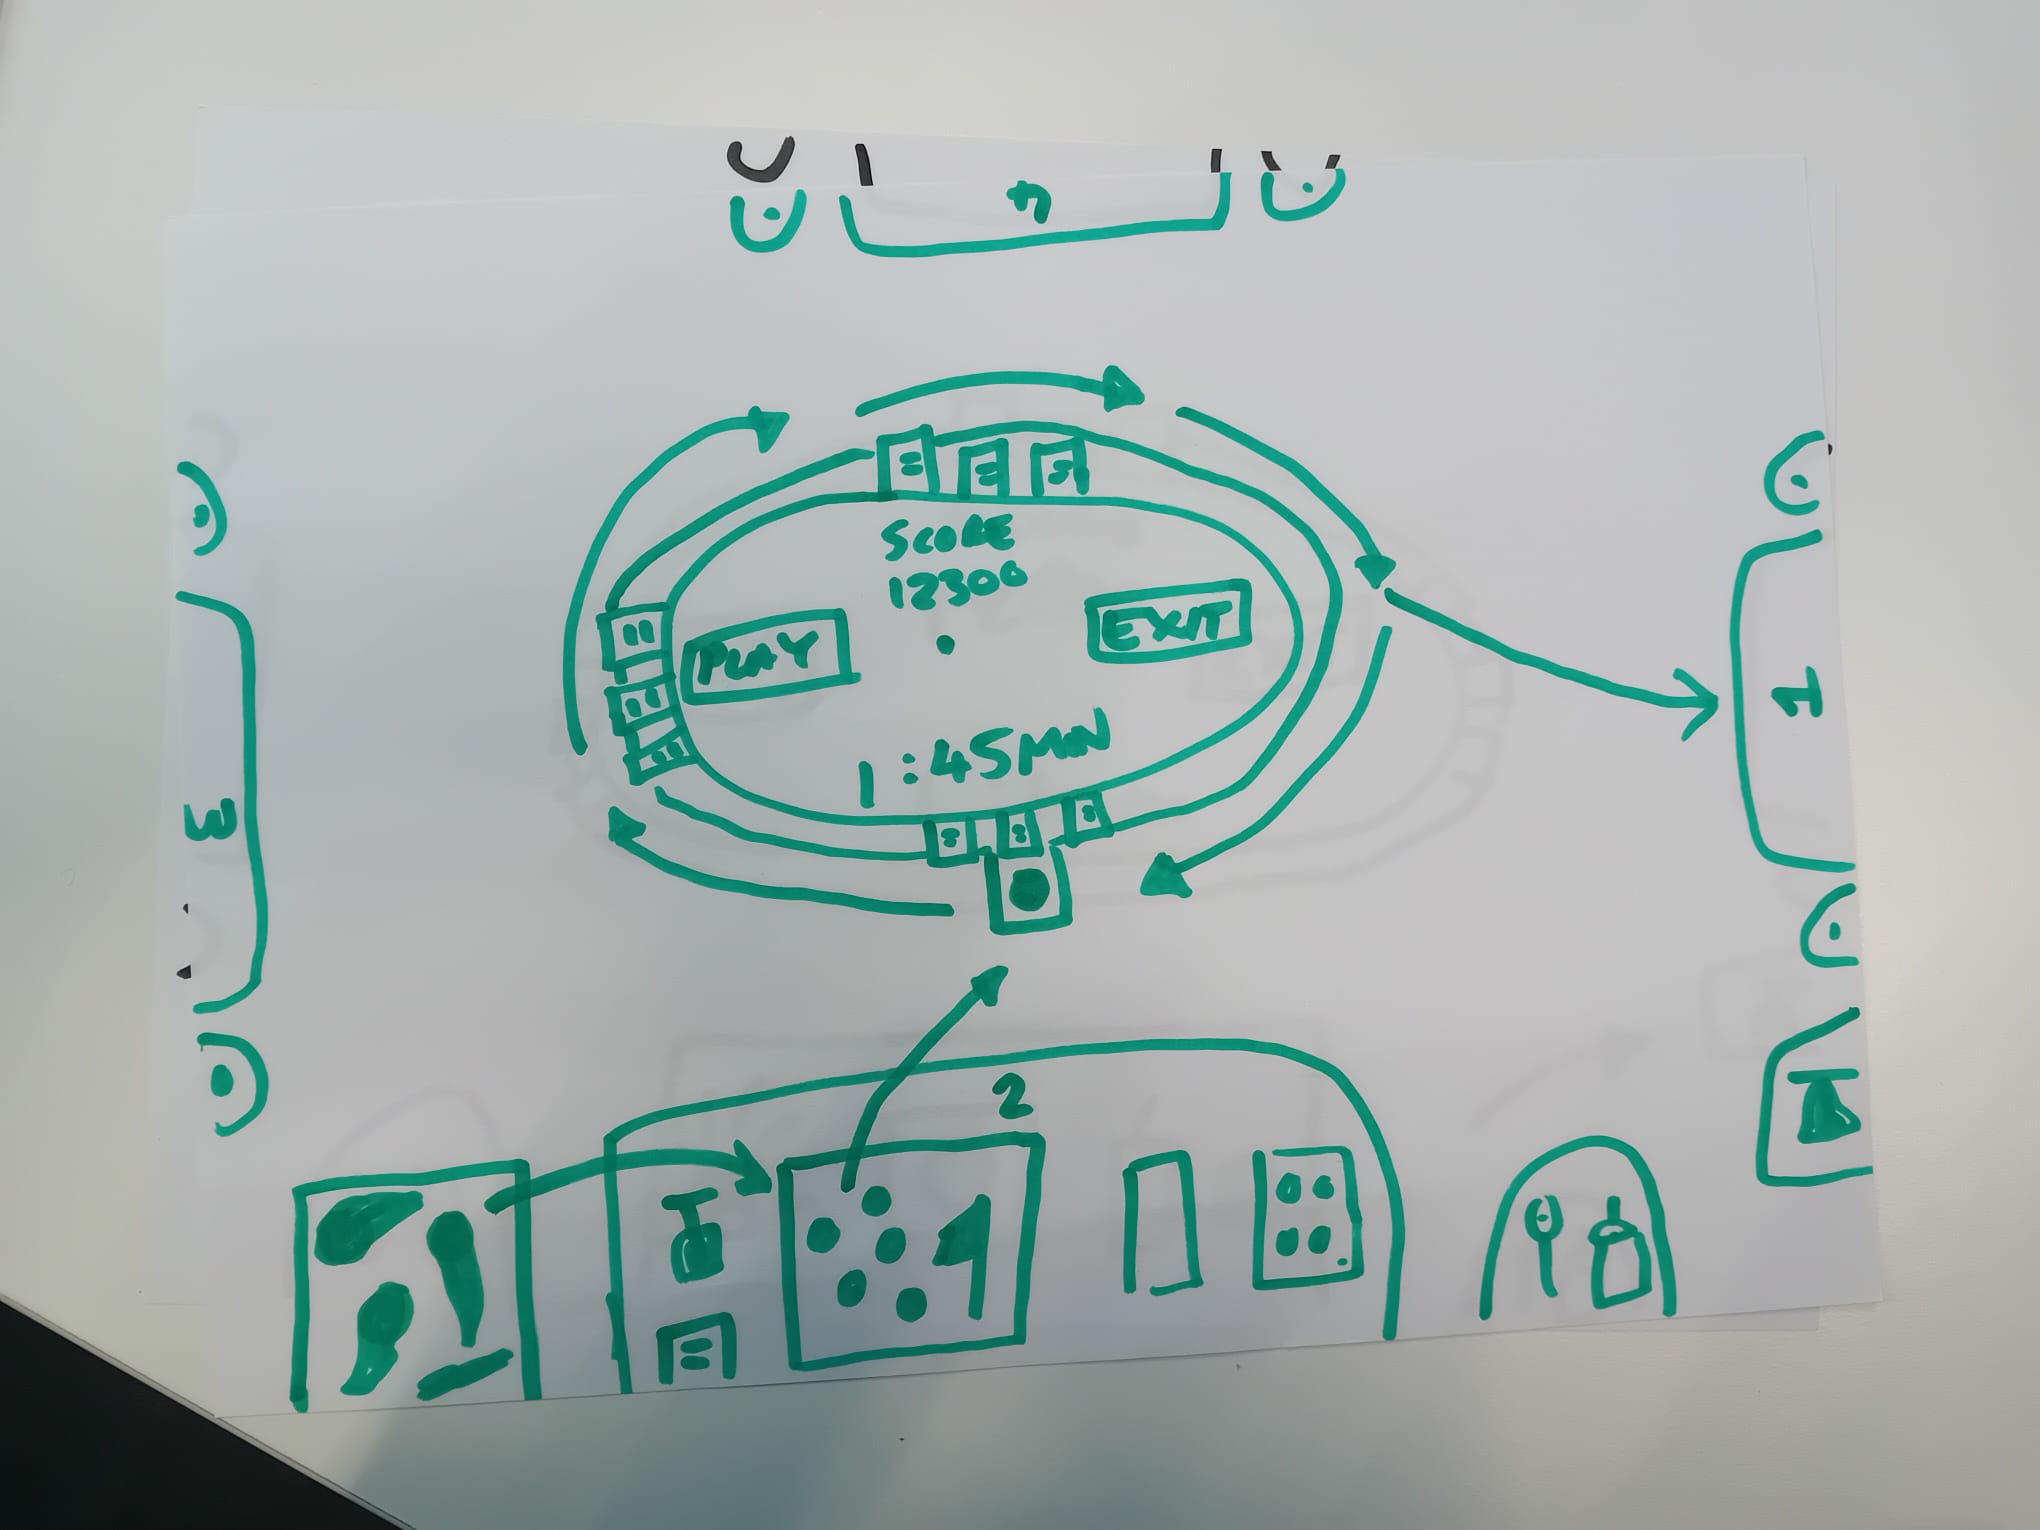 4
SCORE
12300
PLAY
EXIT
1
1:45MIN
3
2